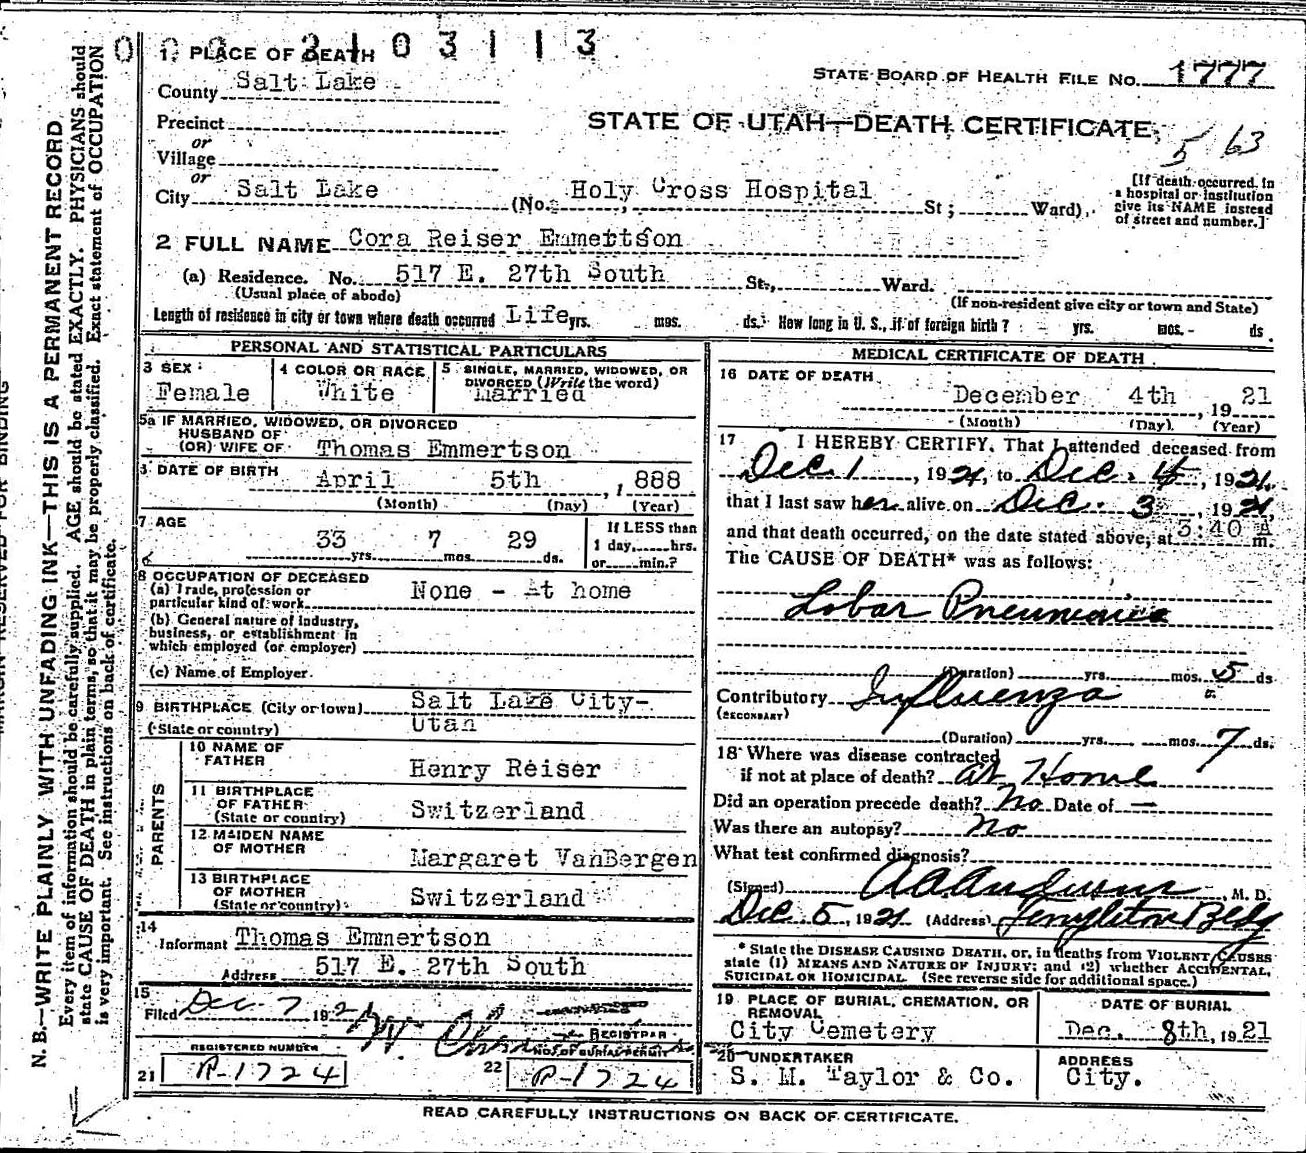 000 2103113
1. PLACE OF DEATH
County Salt Lake
STATE BOARD OF HEALTH FILE NO. 1777
Precinct
STATE OF UTAH—DEATH CERTIFICATE
or
Village
5 63
or
City Salt Lake (No. Holy Cross Hospital St; Ward)
[If death occurred in
a hospital or institution
give its NAME instead
of street and number.]
2 FULL NAME Cora Reiser Emmertson
(a) Residence. No. 517 E. 27th South St., Ward.
(Usual place of abode) (If non-resident give city or town and State)
Length of residence in city or town where death occurred Life yrs. mos. ds. How long in U. S., if of foreign birth? yrs. mos. ds
PERSONAL AND STATISTICAL PARTICULARS
3 SEX 4 COLOR OR RACE 5 SINGLE, MARRIED, WIDOWED, OR
DIVORCED (Write the word)
Female White Married
5a IF MARRIED, WIDOWED, OR DIVORCED
HUSBAND OF
(OR) WIFE OF Thomas Emmertson
DATE OF BIRTH April 5th, 1888
(Month) (Day) (Year)
7 AGE 33 yrs. 7 mos. 29 ds.
If LESS than
1 day,......hrs.
or......min.?
8 OCCUPATION OF DECEASED
(a) Trade, profession or
particular kind of work None - At home
(b) General nature of industry,
business, or establishment in
which employed (or employer)
(c) Name of Employer
9 BIRTHPLACE (City or town) Salt Lake City-
(State or country) Utah
PARENTS
10 NAME OF
FATHER Henry Reiser
11 BIRTHPLACE
OF FATHER
(State or country) Switzerland
12 MAIDEN NAME
OF MOTHER Margaret VanBergen
13 BIRTHPLACE
OF MOTHER
(State or country) Switzerland
14
Informant Thomas Emmertson
Address 517 E. 27th South
15
Filed Dec 7, 192
REGISTRAR
REGISTERED NUMBER NO. OF BURIAL PERMIT
21 R-1724 22 R-1724
MEDICAL CERTIFICATE OF DEATH
16 DATE OF DEATH
December 4th, 1921
(Month) (Day) (Year)
17 I HEREBY CERTIFY, That I attended deceased from
Dec 1, 1921, to Dec. 4, 1921,
that I last saw her alive on Dec. 3, 1921,
and that death occurred, on the date stated above, at 3:40 A m.
The CAUSE OF DEATH* was as follows:
Lobar Pneumonia
(Duration) yrs. mos. 5 ds
Contributory Influenza
(SECONDARY)
(Duration) yrs. mos. 7 ds.
18 Where was disease contracted
if not at place of death? at Home
Did an operation precede death? No Date of —
Was there an autopsy? No
What test confirmed diagnosis?
(Signed) , M. D.
Dec 5, 1921 (Address) Templeton Bldg
* State the DISEASE CAUSING DEATH, or, in deaths from VIOLENT CAUSES
state (1) MEANS AND NATURE OF INJURY; and (2) whether ACCIDENTAL,
SUICIDAL OR HOMICIDAL. (See reverse side for additional space.)
19 PLACE OF BURIAL, CREMATION, OR
REMOVAL DATE OF BURIAL
City Cemetery Dec. 8th, 1921
20 UNDERTAKER ADDRESS
S. M. Taylor & Co. City.
READ CAREFULLY INSTRUCTIONS ON BACK OF CERTIFICATE.
N. B.—WRITE PLAINLY WITH UNFADING INK—THIS IS A PERMANENT RECORD
Every item of information should be carefully supplied. AGE should be stated EXACTLY. PHYSICIANS should
state CAUSE OF DEATH in plain terms, so that it may be properly classified. Exact statement of OCCUPATION
is very important. See instructions on back of certificate.
MARGIN RESERVED FOR BINDING